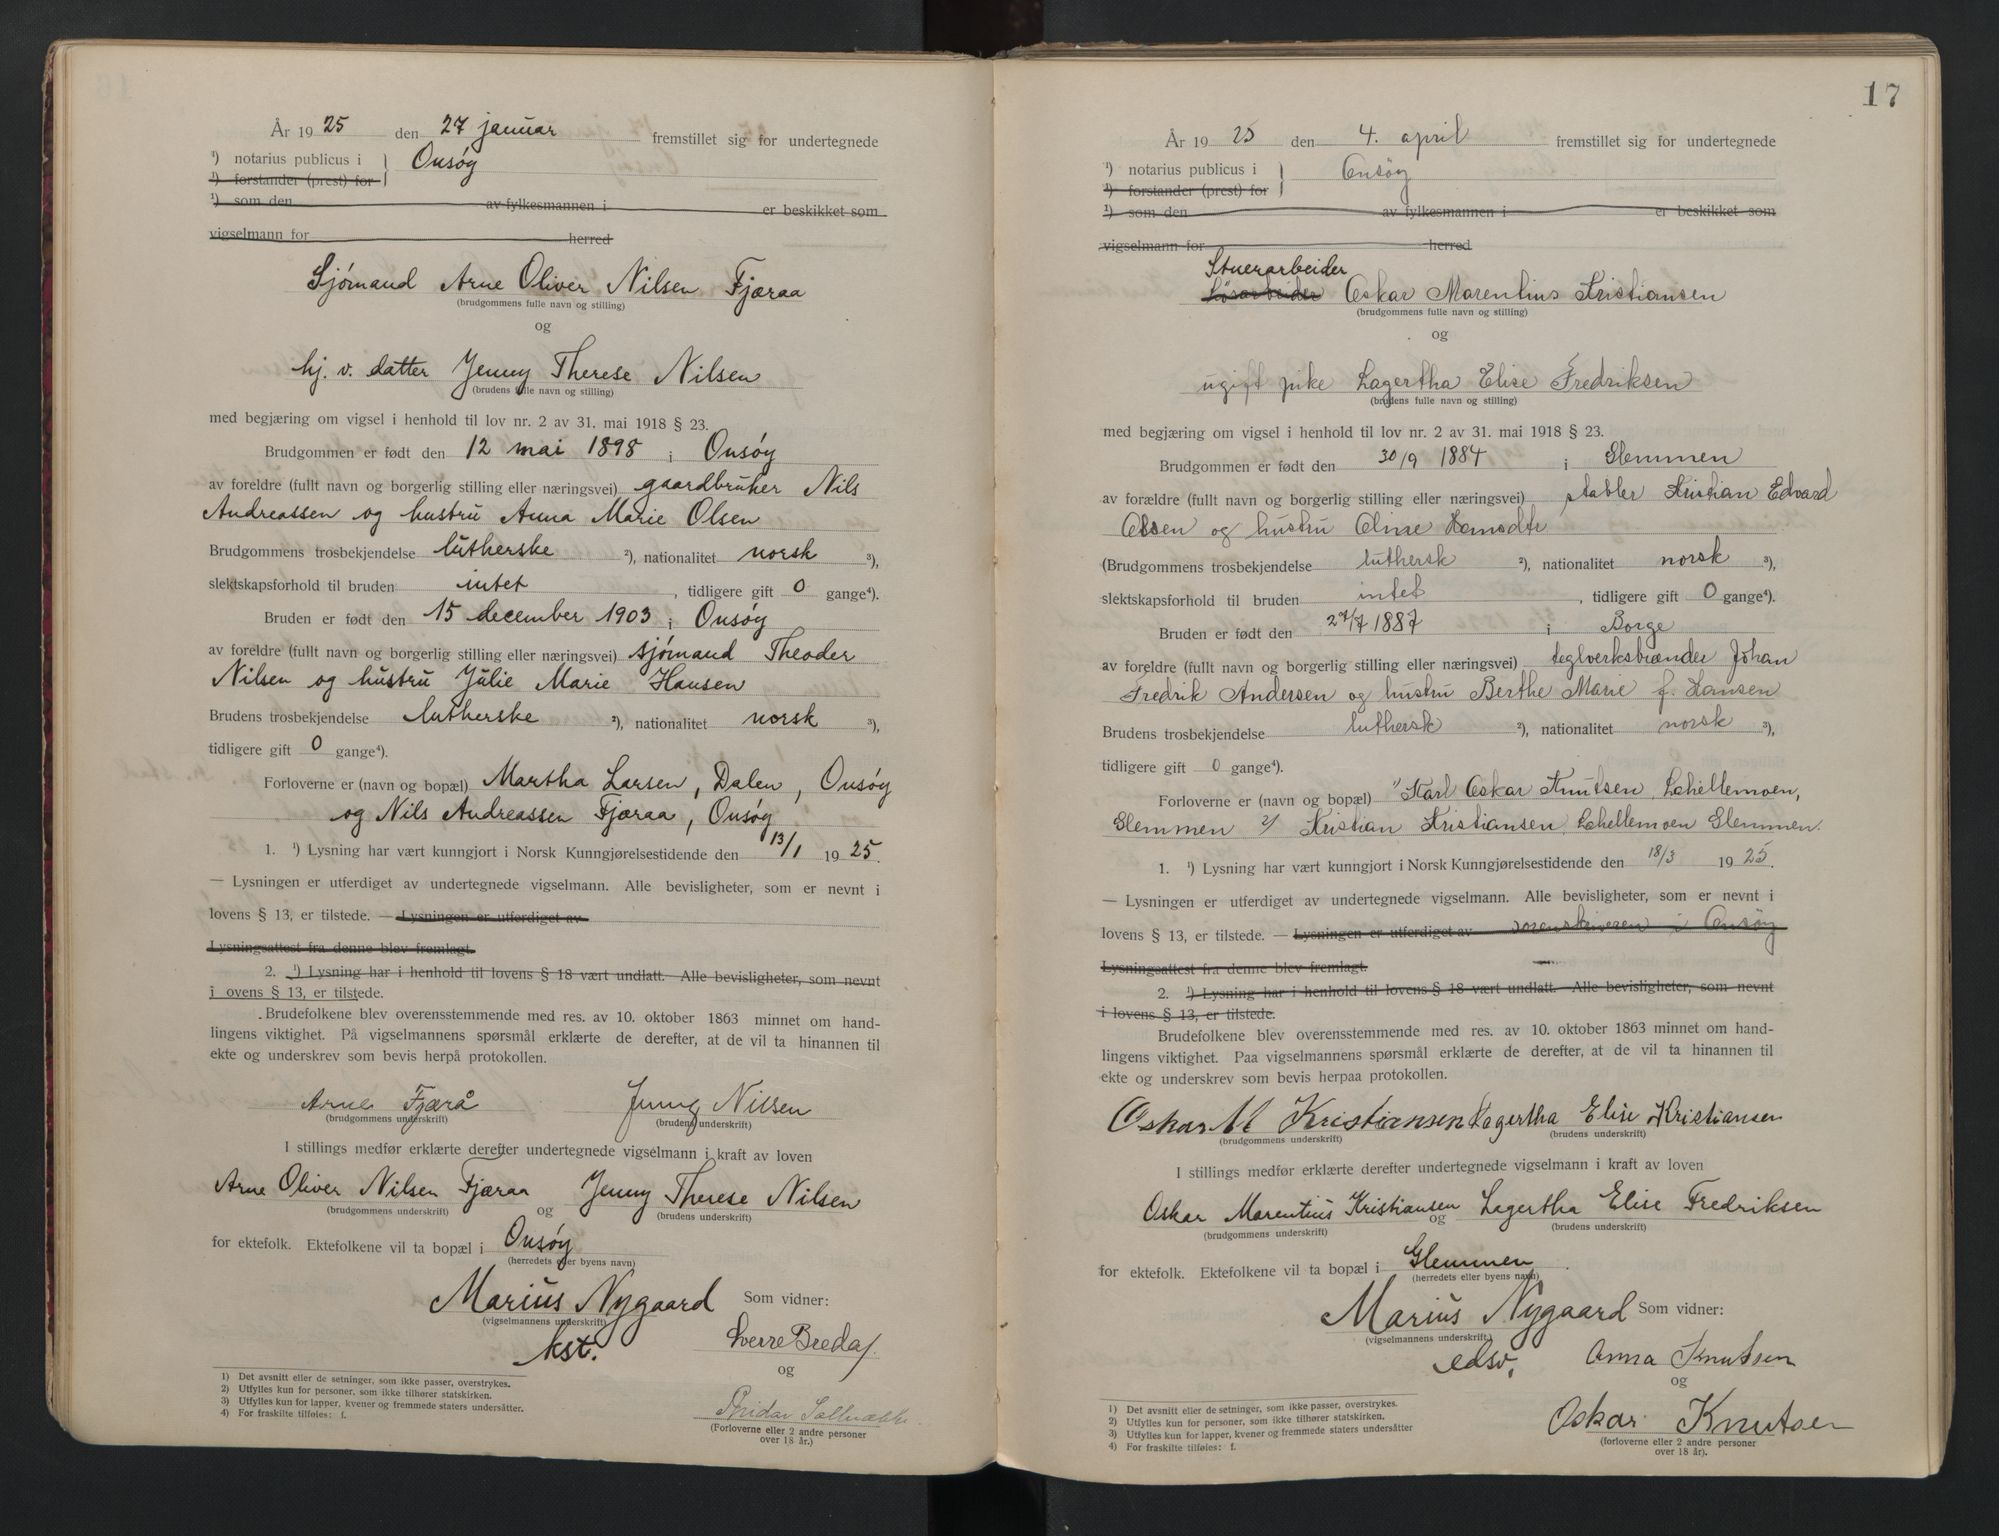 År 1925 den 27 januar fremstillet sig for undertegnede
¹) notarius publicus i } Onsøy
¹) forstander (prest) for
¹) som den av fylkesmannen i er beskikket som
vigselmann for herred
Sjømand Arne Oliver Nilsen Fjæraa
(brudgommens fulle navn og stilling)
og
hj. v. datter Jenny Therese Nilsen
(brudens fulle navn og stilling)
med begjæring om vigsel i henhold til lov nr. 2 av 31. mai 1918 § 23.
Brudgommen er født den 12 mai 1898 i Onsøy
av foreldre (fullt navn og borgerlig stilling eller næringsvei) gaardbruker Nils
Andreassen og hustru Anna Marie Olsen
Brudgommens trosbekjendelse lutherske ²), nationalitet norsk ³),
slektskapsforhold til bruden intet, tidligere gift 0 gange⁴).
Bruden er født den 15 december 1903 i Onsøy
av foreldre (fullt navn og borgerlig stilling eller næringsvei) sjømand Theodor
Nilsen og hustru Julie Marie Hansen
Brudens trosbekjendelse lutherske ²), nationalitet norsk ³),
tidligere gift 0 gange⁴).
Forloverne er (navn og bopæl) Martha Larsen, Dalen, Onsøy
og Nils Andreassen Fjæraa, Onsøy
1. ¹) Lysning har vært kunngjort i Norsk Kunngjørelsestidende den 13/1 1925.
— Lysningen er utferdiget av undertegnede vigselmann. Alle bevisligheter, som er nevnt i
lovens § 13, er tilstede. — Lysningen er utferdiget av
Lysningsattest fra denne blev fremlagt.
2. ¹) Lysning har i henhold til lovens § 18 vært undlatt. Alle bevisligheter, som nevnt
i ovens § 13, er tilstede.
Brudefolkene blev overensstemmende med res. av 10. oktober 1863 minnet om hand-
lingens viktighet. På vigselmannens spørsmål erklærte de derefter, at de vil ta hinannen til
ekte og underskrev som bevis herpå protokollen.
Arne Fjærå Jenny Nilsen
(brudgommens underskrift) (brudens underskrift)
I stillings medfør erklærte derefter undertegnede vigselmann i kraft av loven
Arne Oliver Nilsen Fjæraa og Jenny Therese Nilsen
(brudgommens underskrift) (brudens underskrift)
for ektefolk. Ektefolkene vil ta bopæl i Onsøy
(herredets eller byens navn)
Marius Nygaard Som vidner:
(vigselmannens underskrift)
kst. Sverre Breda
og
(Forloverne eller 2 andre personer
over 18 år.)
1) Det avsnitt eller de setninger, som ikke passer, overstrykes.
2) Utfylles kun for personer, som ikke tilhører statskirken.
3) Utfylles kun for lapper, kvener og fremmede staters undersåtter.
4) For fraskilte tilføies: f.
17
År 1925 den 4. april fremstillet sig for undertegnede
¹) notarius publicus i } Onsöy
¹) forstander (prest) for
¹) som den av fylkesmannen i er beskikket som
vigselmann for herred
Stuerarbeider
Løsarbeider Oskar Marentius Kristiansen
(brudgommens fulle navn og stilling)
og
ugift pike Lagertha Elise Fredriksen
(brudens fulle navn og stilling)
med begjæring om vigsel i henhold til lov nr. 2 av 31. mai 1918 § 23.
Brudgommen er født den 30/9 1884 i Glemmen
av forældre (fullt navn og borgerlig stilling eller næringsvei) stabler Kristian Edvard
Olsen og hustru Oline Hansdtr
(Brudgommens trosbekjendelse luthersk ²), nationalitet norsk ³),
slektskapsforhold til bruden intet, tidligere gift 0 gange⁴).
Bruden er født den 27/7 1887 i Borge
av foreldre (fullt navn og borgerlig stilling eller næringsvei) teglverksbrænder Johan
Fredrik Andersen og hustru Berthe Marie f. Hansen
Brudens trosbekjendelse luthersk ²), nationalitet norsk ³),
tidligere gift 0 gange⁴).
Forloverne er (navn og bopæl) 1/ Karl Oskar Knutsen, Lahellemoen,
Glemmen 2/ Kristian Kristiansen, Lahellemoen Glemmen.
1. ¹) Lysning har vært kunngjort i Norsk Kunngjørelsestidende den 18/3 1925.
— Lysningen er utferdiget av undertegnede vigselmann. Alle bevisligheter, som er nevnt i
lovens § 13, er tilstede. — Lysningen er utferdiget av sorenskriveren i Onsøy
Lysningsattest fra denne blev fremlagt.
2. ¹) Lysning har i henhold til lovens § 18 vært undlatt. Alle bevisligheter, som nevnt
i lovens § 13, er tilstede.
Brudefolkene blev overensstemmende med res. av 10. oktober 1863 minnet om hand-
lingens viktighet. Paa vigselmannens spørsmål erklærte de derefter, at de vil ta hinannen til
ekte og underskrev som bevis herpaa protokollen.
Oskar M Kristiansen Lagertha Elise Kristiansen
(brudgommens underskrift) (brudens underskrift)
I stillings medfør erklærte derefter undertegnede vigselmann i kraft av loven
Oskar Marentius Kristiansen og Lagertha Elise Fredriksen
(brudgommens underskrift) (brudens underskrift)
for ektefolk. Ektefolkene vil ta bopæl i Glemmen.
(herredets eller byens navn)
Marius Nygaard Som vidner:
(vigselmannens underskrift)
edsv. Anna Knutsen
og
Oskar Knutsen
(forloverne eller 2 andre personer
over 18 år).
1) Det avsnitt eller de setninger, som ikke passer, overstrykes.
2) Utfylles kun for personer, som ikke tilhører statskirken.
3) Utfylles kun for lapper, kvener og fremmede staters undersåtter
4) For fraskilte tilføies: f.